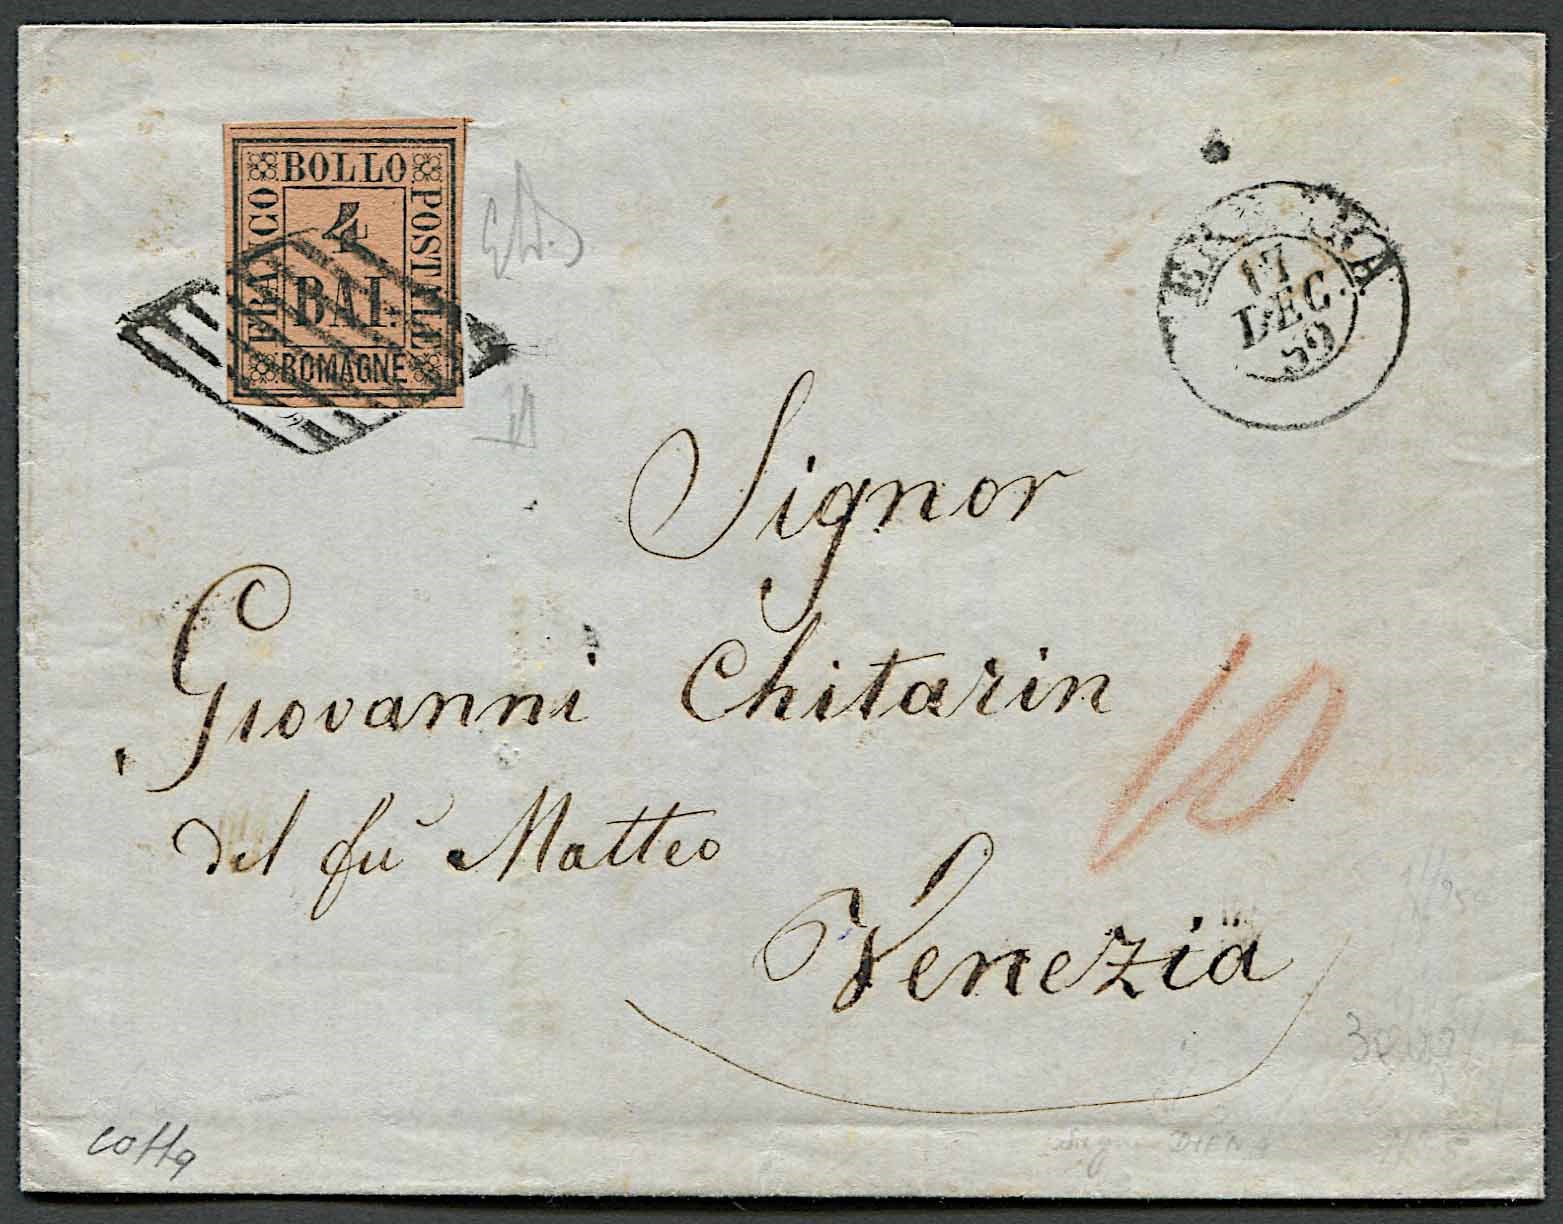 BOLLO
FRANCO
POSTALE
4
BAI.
ROMAGNE
17
DEC.
59
Signor
Giovanni Chitarin
del fu Matteo
10
Venezia